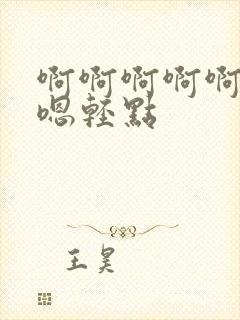 啊啊啊啊啊
嗯輕點
王昊